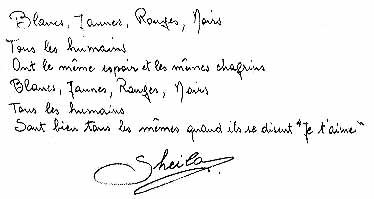 Blancs, Jaunes, Rouges, Noirs
Tous les humains
Ont le même espoir et les mêmes chagrins
Blancs, Jaunes, Rouges, Noirs
Tous les humains
Sont bien tous les mêmes quand ils se disent "Je t'aime"
Sheila